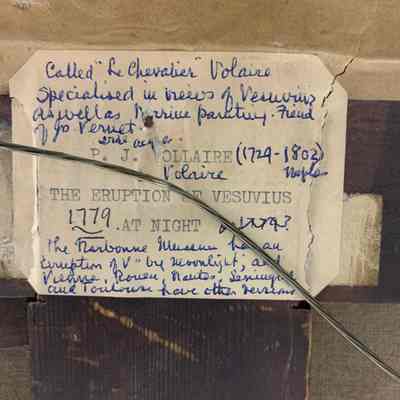 Called "Le Chevalier" Volaire
Specialised in views of Vesuvius
as well as Marine painting. Friend
of Jo Vernet.
P. J. VOLLAIRE (1729-1802)
Volaire Naples
THE ERUPTION OF VESUVIUS
1779. AT NIGHT 1779?
The Narbonne Museum has an
Eruption of V" by moonlight, and
Vienne, Rouen, Nantes,
and Toulouse have other versions